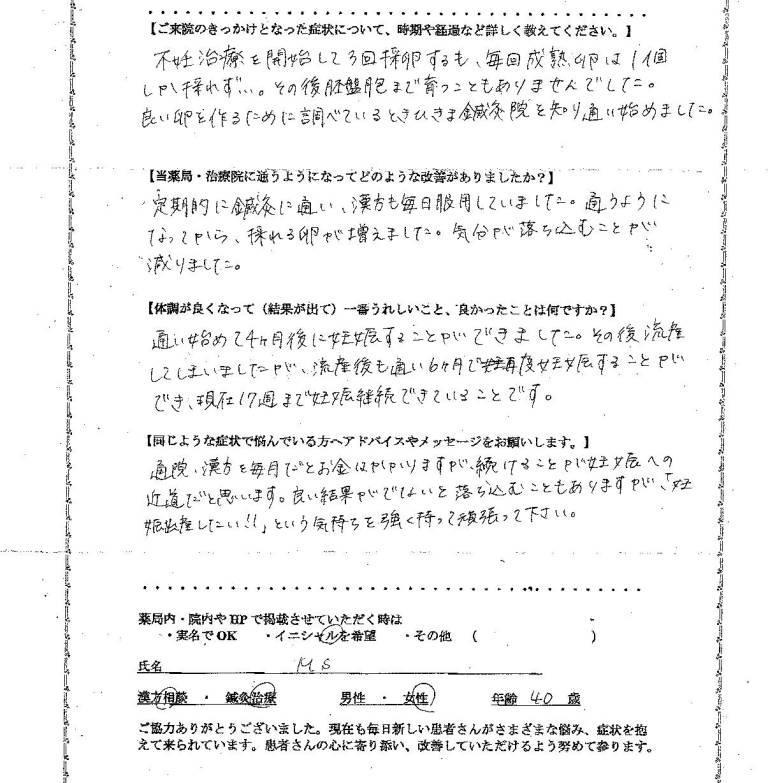 【ご来院のきっかけとなった症状について、時期や経過など詳しく教えてください。】
不妊治療を開始して3回採卵するも、毎回成熟卵は1個
しか採れず…。その後胚盤胞まで育つこともありませんでした。
良い卵を作るために調べているときひきま鍼灸院を知り通い始めました。
【当薬局・治療院に通うようになってどのような改善がありましたか？】
定期的に鍼灸に通い、漢方も毎日服用していました。通うように
なってから、採れる卵が増えました。気分が落ち込むことが
減りました。
【体調が良くなって（結果が出て）一番うれしいこと、良かったことは何ですか？】
通い始めて4ヶ月後に妊娠することができました。その後流産
してしまいましたが、流産後も通い6ヶ月で再度妊娠することが
でき、現在17週まで妊娠継続できていることです。
【同じような症状で悩んでいる方へアドバイスやメッセージをお願いします。】
通院、漢方を毎月だとお金はかかりますが、続けることが妊娠への
近道だと思います。良い結果がでないと落ち込むこともありますが、「妊
娠出産したい!!」という気持ちを強く持って頑張って下さい。
薬局内・院内やHPで掲載させていただく時は
・実名でOK ・イニシャルを希望 ・その他 （ ）
氏名 M S
漢方相談 ・ 鍼灸治療 男性 ・ 女性 年齢 40 歳
ご協力ありがとうございました。現在も毎日新しい患者さんがさまざまな悩み、症状を抱
えて来られています。患者さんの心に寄り添い、改善していただけるよう努めて参ります。